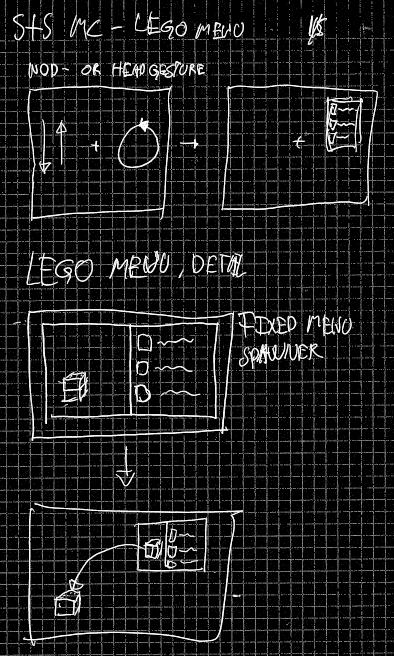 STS MC - LEGO MENU
NOD- OR HEADGESTURE
LEGO MENU, DETAIL
FIXED MENU
SPAWNER